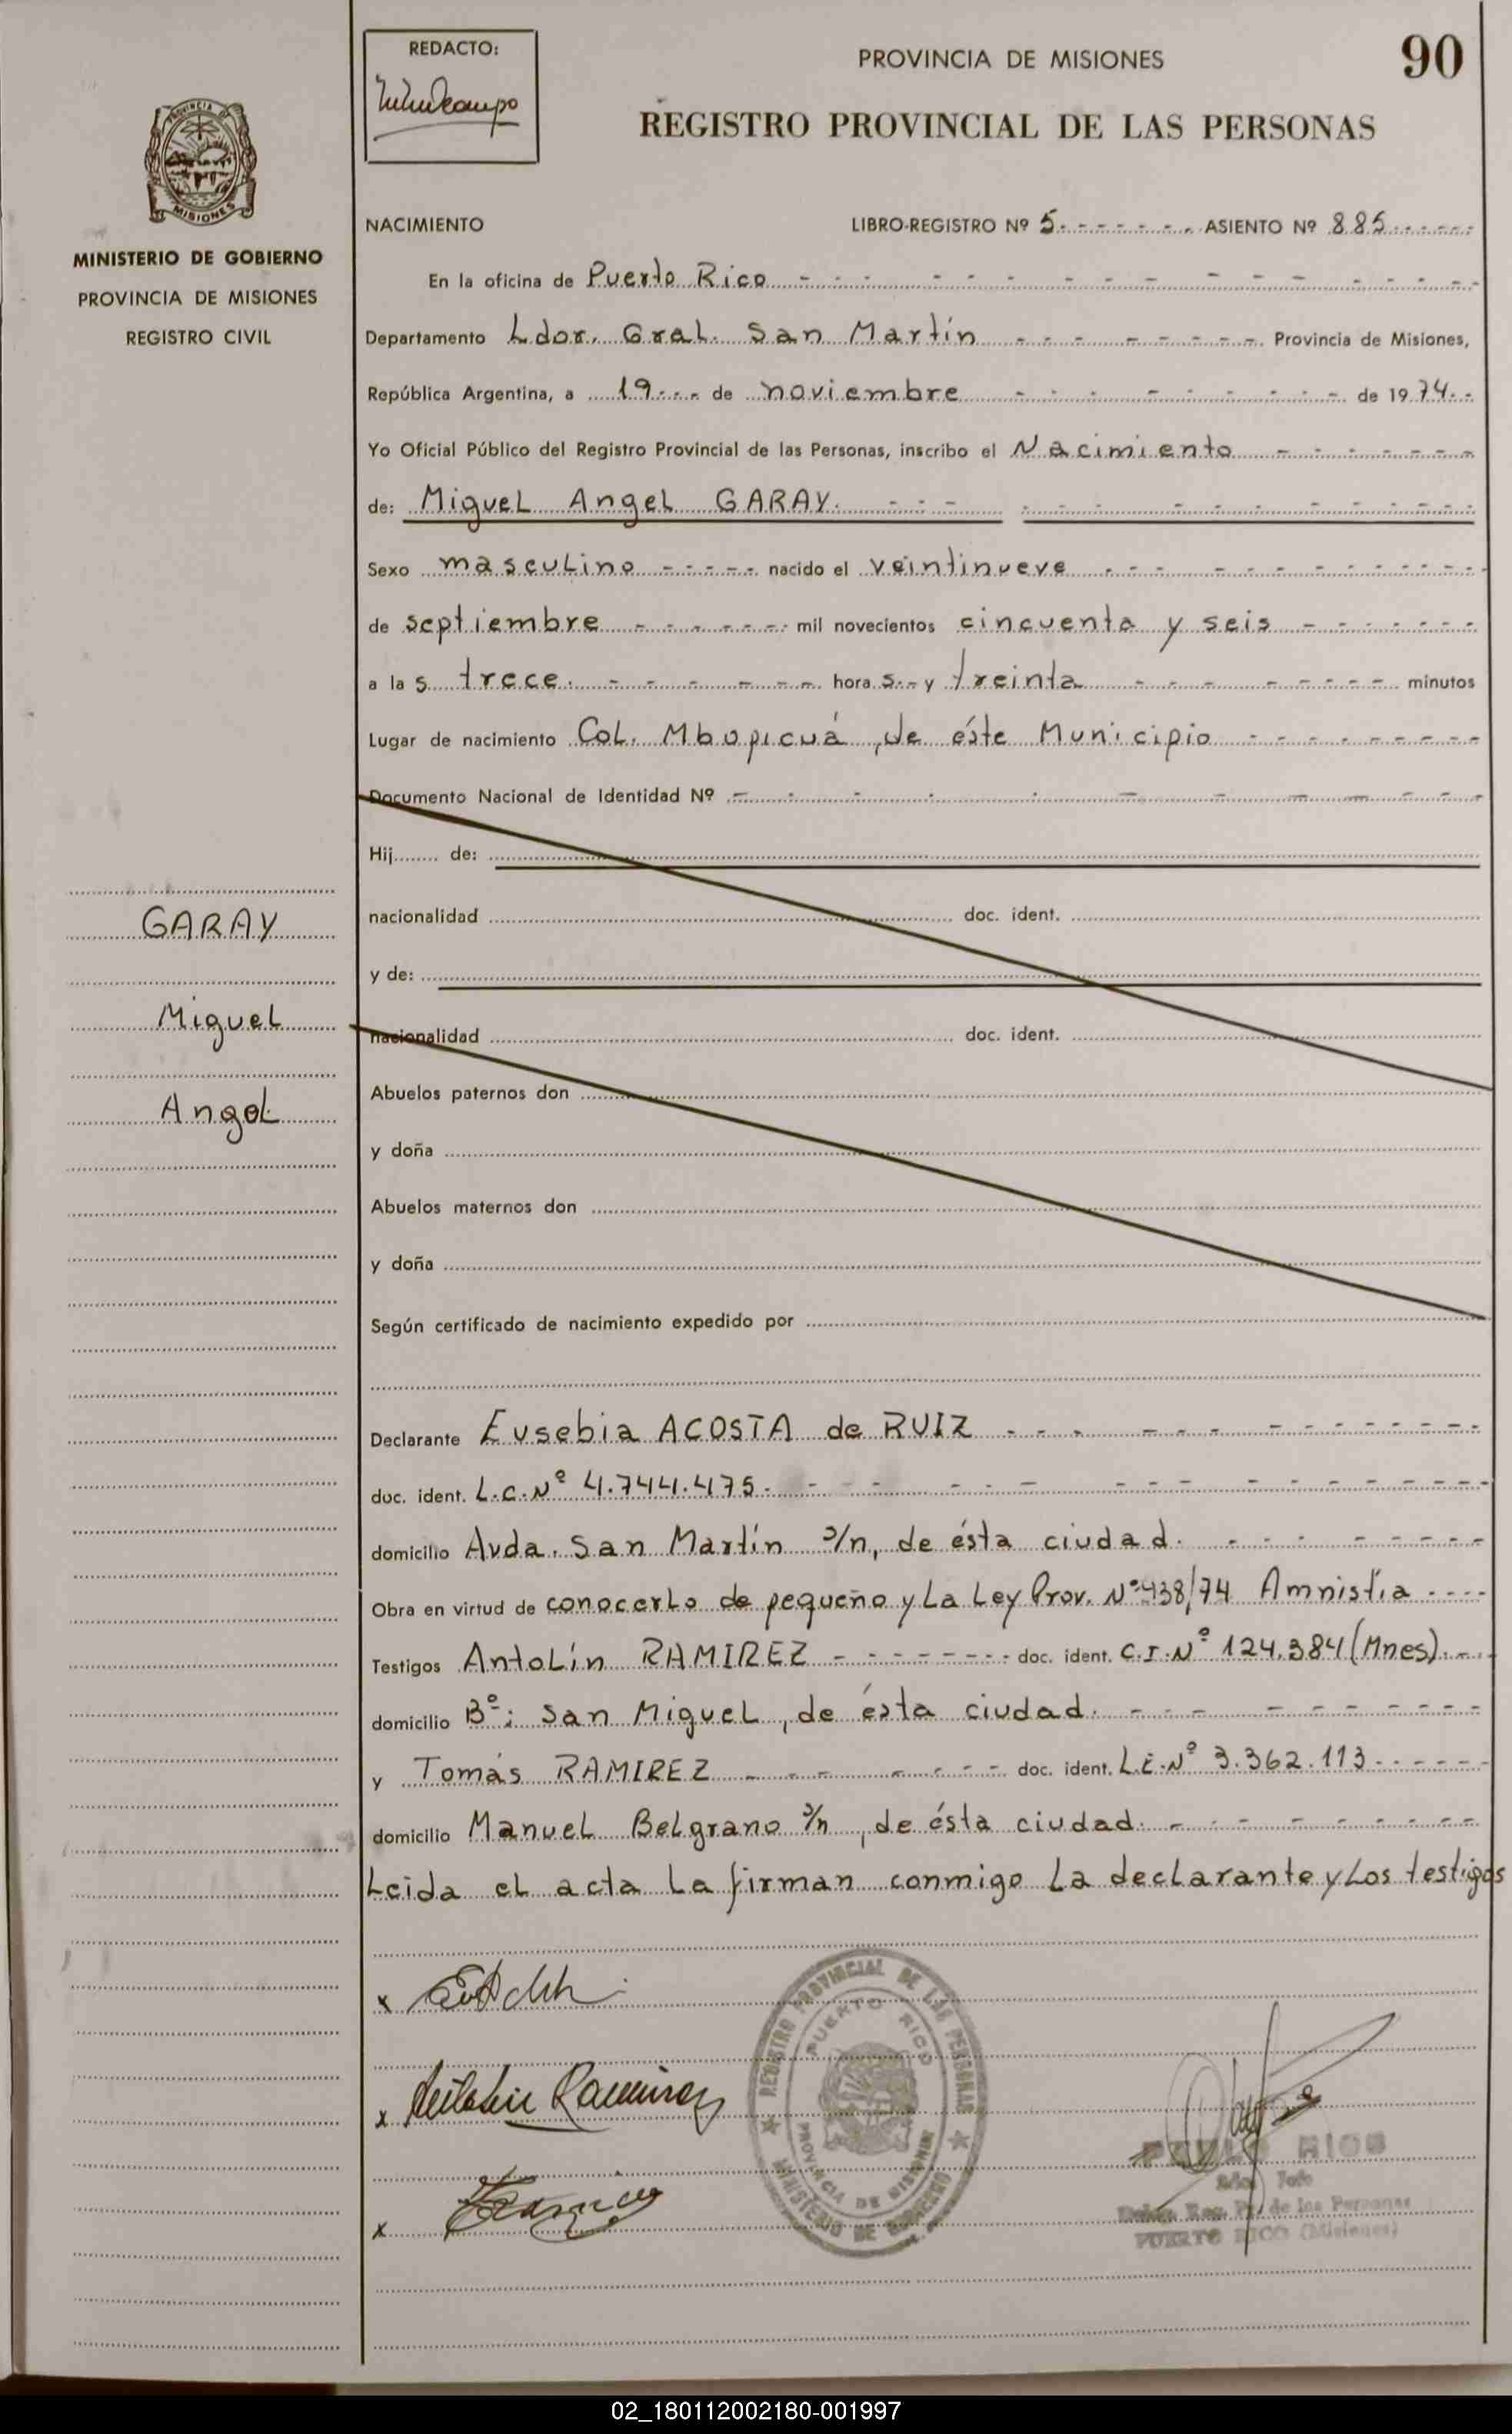 REDACTO:
PROVINCIA DE MISIONES
90
REGISTRO PROVINCIAL DE LAS PERSONAS
MISIONES
MINISTERIO DE GOBIERNO
PROVINCIA DE MISIONES
REGISTRO CIVIL
NACIMIENTO LIBRO-REGISTRO Nº 5.- ASIENTO Nº 885
En la oficina de Puerto Rico
Departamento Ldor. Gral. San Martín Provincia de Misiones,
República Argentina, a 19 de noviembre de 1974
Yo Oficial Público del Registro Provincial de las Personas, inscribo el Nacimiento
de: Miguel Angel GARAY.
Sexo masculino nacido el veintinueve
de septiembre mil novecientos cincuenta y seis
a las trece. horas y treinta minutos
Lugar de nacimiento Col. Mbopicuá, de éste Municipio
Documento Nacional de Identidad Nº
Hij de:
nacionalidad doc. ident.
y de:
nacionalidad doc. ident.
Abuelos paternos don
y doña
Abuelos maternos don
y doña
Según certificado de nacimiento expedido por
GARAY
Miguel
Angel
Declarante Eusebia ACOSTA de RUIZ
doc. ident. L.C.Nº 4.744.475.
domicilio Avda. San Martín s/n, de ésta ciudad.
Obra en virtud de conocerlo de pequeño y La Ley Prov. Nº 438/74 Amnistía
Testigos Antolín RAMIREZ doc. ident. C.I.Nº 124.384 (Mnes).
domicilio Bº: San Miguel, de ésta ciudad.
y Tomás RAMIREZ doc. ident. L.E.Nº 3.362.113
domicilio Manuel Belgrano s/n, de ésta ciudad.
Leida el acta la firman conmigo la declarante y los testigos
x
x Antolin Ramirez
x
REGISTRO PROVINCIAL DE LAS PERSONAS
PUERTO RICO
PROVINCIA DE MISIONES
MINISTERIO DE GOBIERNO
Reg. de las Personas
PUERTO RICO (Misiones)
02_180112002180-001997